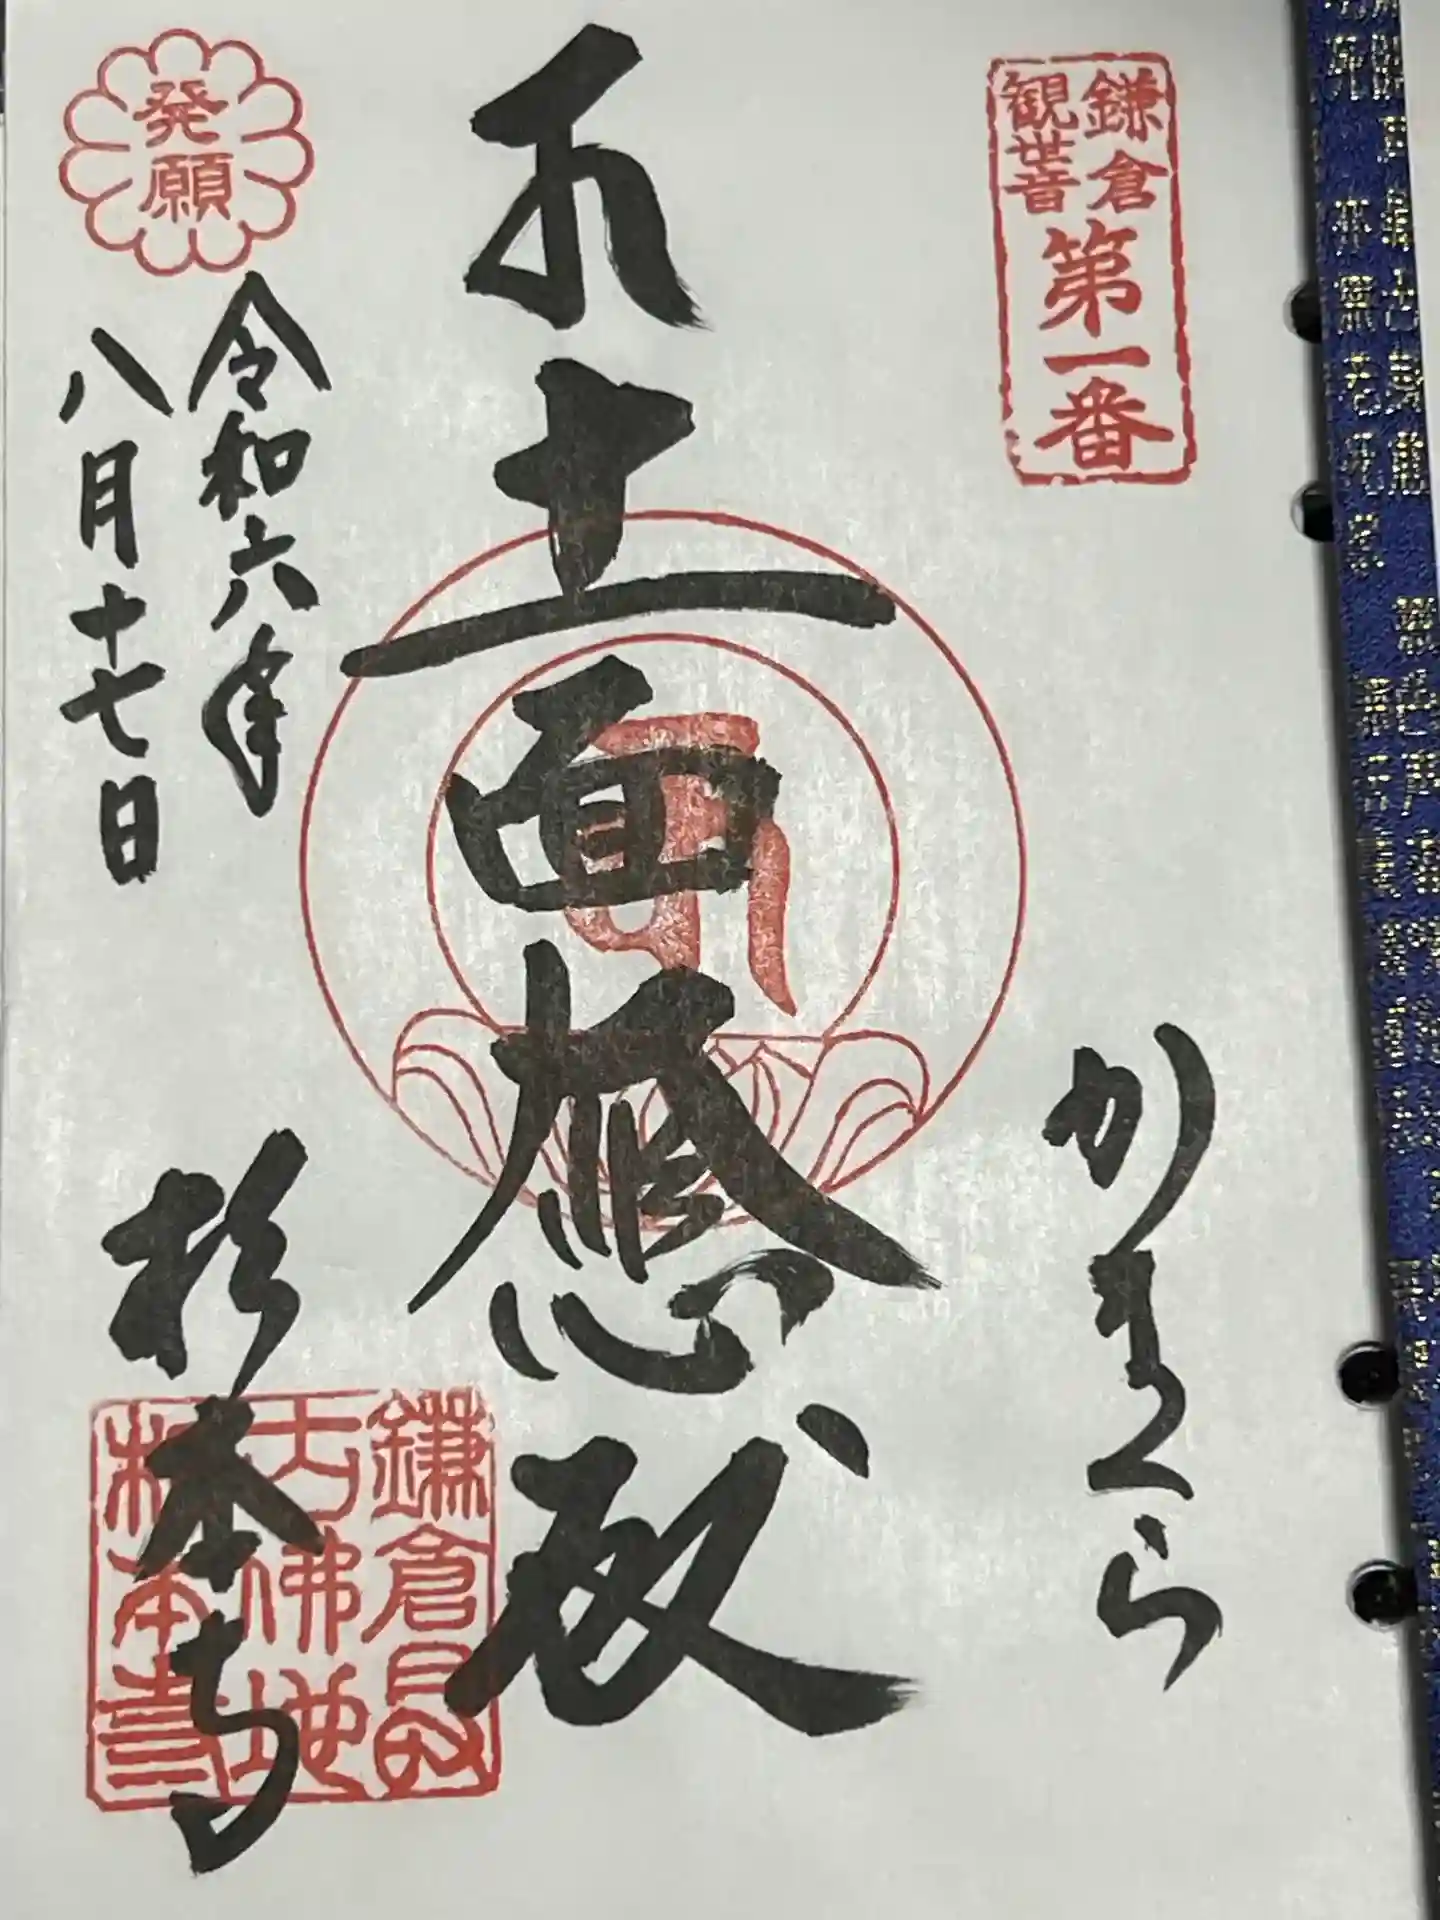 鎌倉
観世音
第一番
かまくら
十一面大悲殿
発願
令和六年
八月十七日
杉本寺
鎌倉最
古佛地
杉本寺